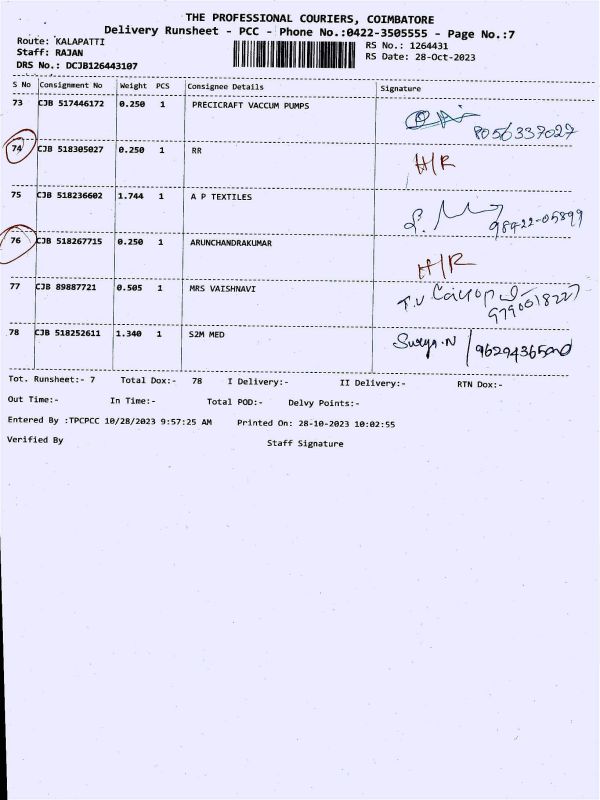 THE PROFESSIONAL COURIERS, COIMBATORE
Delivery Runsheet - PCC - Phone No.:0422-3505555 - Page No.:7
Route: KALAPATTI
RS No.: 1264431
Staff: RAJAN
RS Date: 28-Oct-2023
DRS No.: DCJB126443107
S No Consignment No Weight PCS Consignee Details Signature
73 CJB 517446172 0.250 1 PRECICRAFT VACCUM PUMPS
8056337027
74 CJB 518305027 0.250 1 RR H/R
75 CJB 518236602 1.744 1 A P TEXTILES
98422-05899
76 CJB 518267715 0.250 1 ARUNCHANDRAKUMAR H/R
77 CJB 89887721 0.505 1 MRS VAISHNAVI T.V
9790018227
78 CJB 518252611 1.340 1 S2M MED Surya.N
Tot. Runsheet:- 7 Total Dox:- 78 I Delivery:- II Delivery:- RTN Dox:-
Out Time:- In Time:- Total POD:- Delvy Points:-
Entered By :TPCPCC 10/28/2023 9:57:25 AM Printed On: 28-10-2023 10:02:55
Verified By Staff Signature